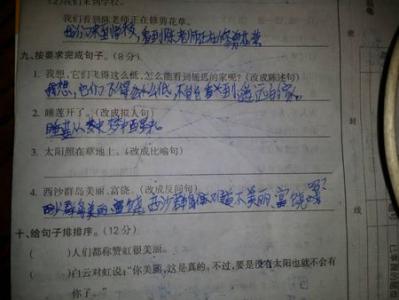 我们看到陈老师正在修剪花草。
看到陈老师正在修剪花草
九、按要求完成句子。(8分)
1. 我想,它们飞得这么低,怎么能看到遥远的家呢?(改成陈述句)
我想,它们飞得这么低,不能看到遥远的家。
2. 睡莲开了。(改成拟人句)
睡莲从梦中
3. 太阳照在草地上。(改成比喻句)
4. 西沙群岛美丽、富饶。(改成反问句)
西沙群岛美丽、富饶,西沙群岛难道不美丽、富饶吗?
十、给句子排排序。(12分)
( )人们都称赞虹很美丽。
( )白云对虹说:“你美丽,这是真的,不过,要是没有太阳也就不会有
你了。”